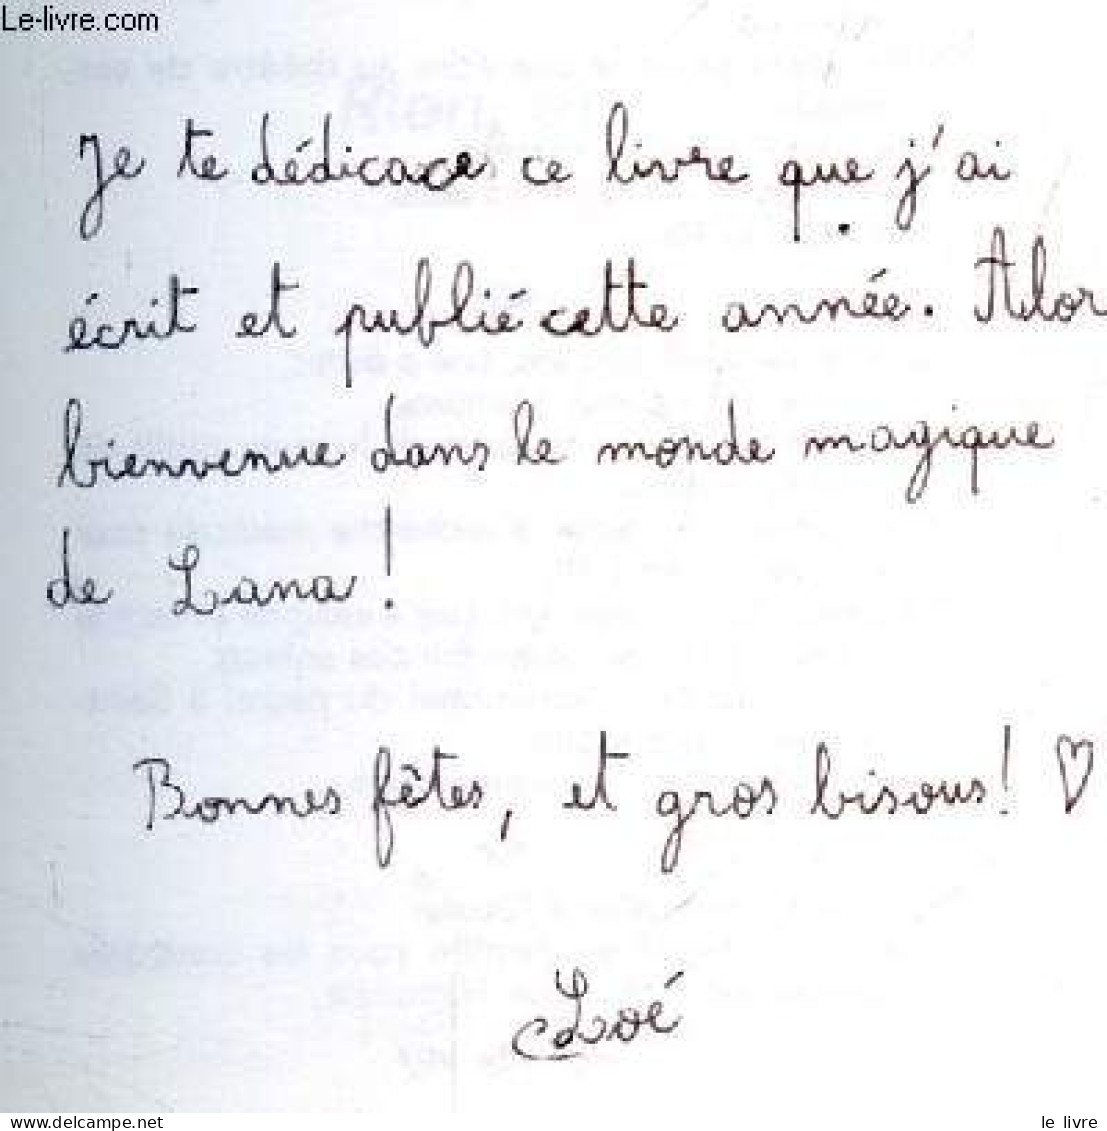 Le-livre.com
Je te dédicace ce livre que j'ai
écrit et publié cette année. Alor
bienvenue dans le monde magique
de Lana!
Bonnes fêtes, et gros bisous! ♡
Loé
www.delcampe.net
le livre